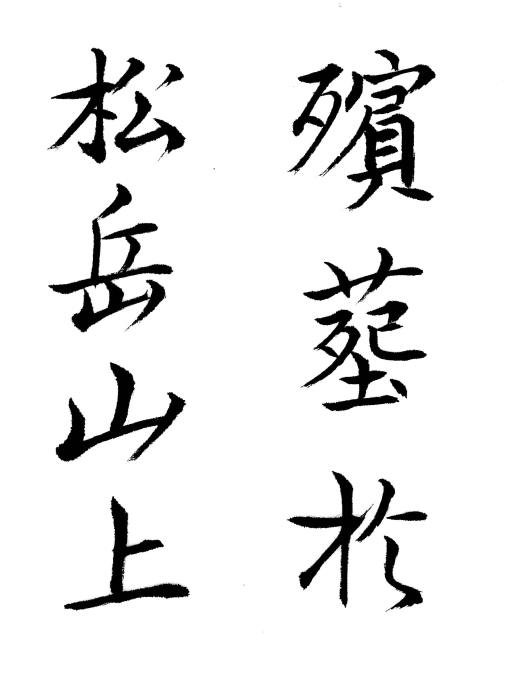 殯塟於
松岳山上